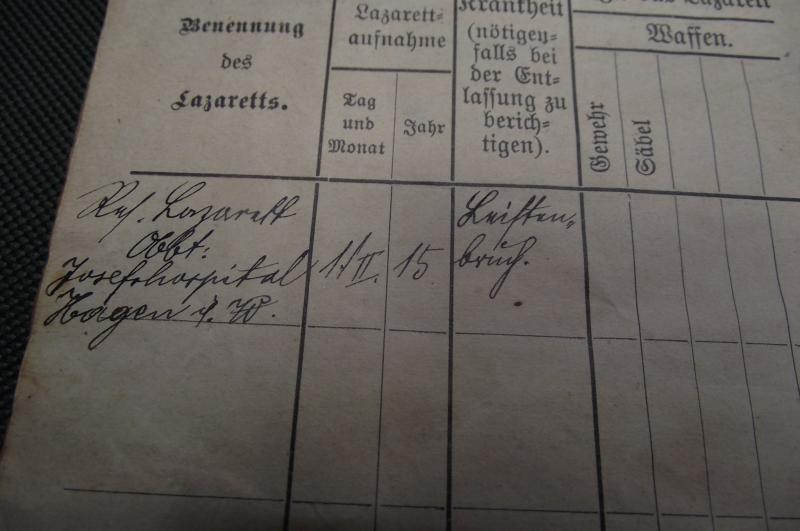 Benennung
des
Lazaretts.
Lazarett=
aufnahme
Tag
und
Monat
Jahr
Krankheit
(nötigen=
falls bei
der Ent=
lassung zu
berich=
tigen).
Lazarett
Waffen.
Gewehr
Säbel
Res. Lazarett
Abbt:
Josefshospital
Hagen i. W.
11/II.
15
Leisten=
bruch.